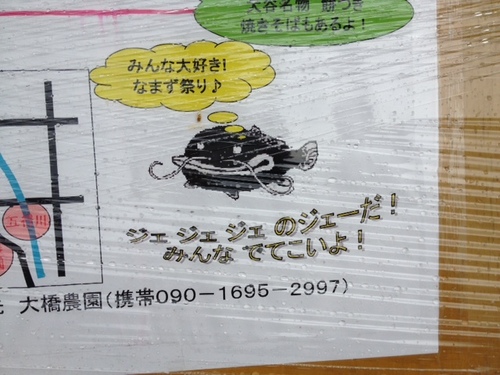 大谷名物 餅つき
焼きそばもあるよ！
みんな大好き!
なまず祭り♪
ジェ ジェ ジェ のジェーだ！
みんな でてこいよ！
大橋農園(携帯090－1695－2997)